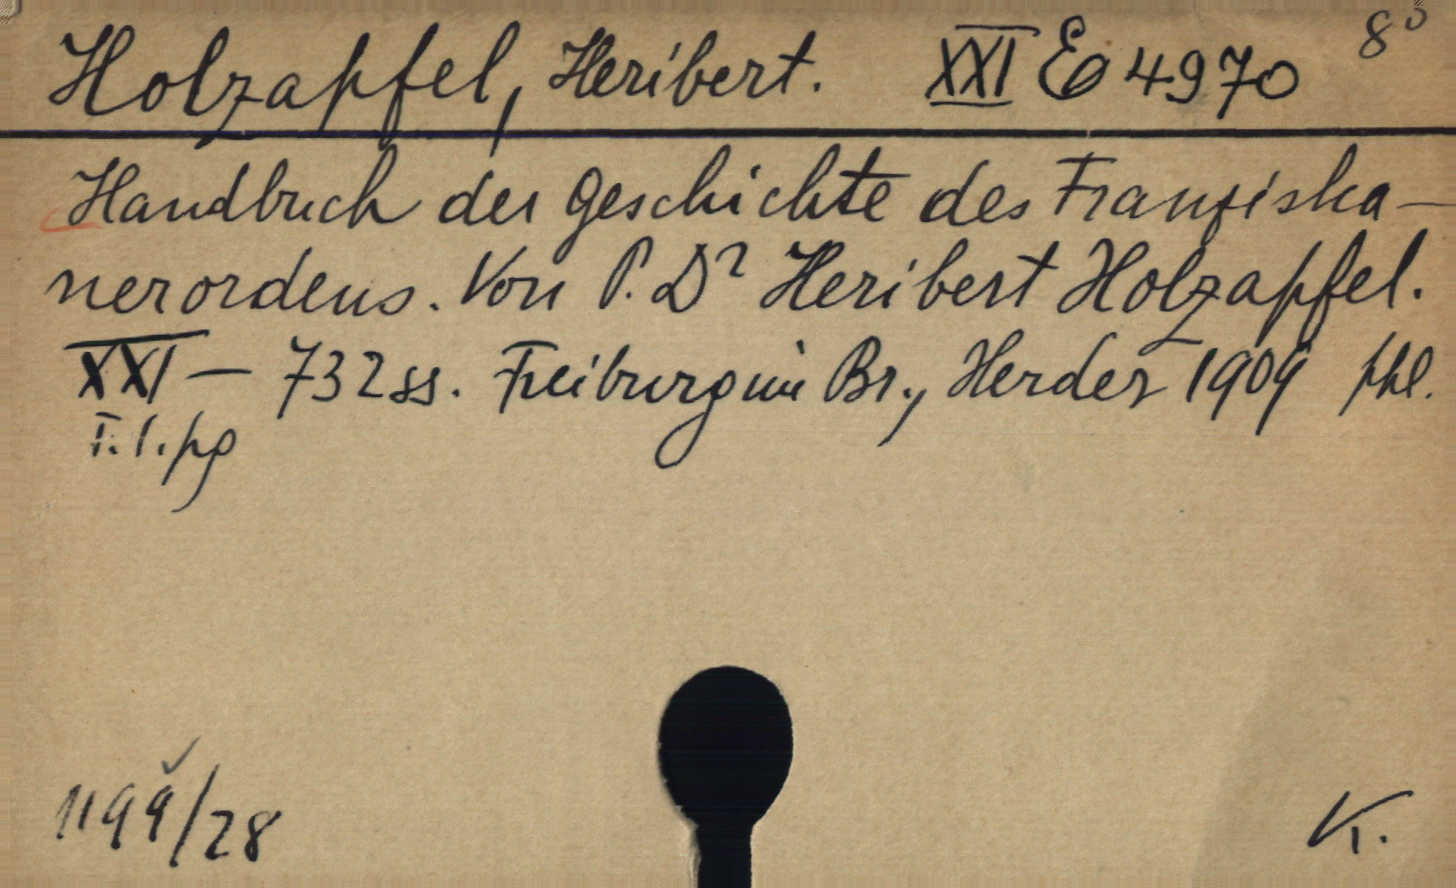 Holzapfel, Heribert. XXI E 4970 8°
Handbuch der Geschichte des Franziska-
nerordens. Von P. Dr Heribert Holzapfel.
XXI - 732 ss. Freiburg im Br., Herder 1909 phl.
T. 1. pg
1199/28
K.